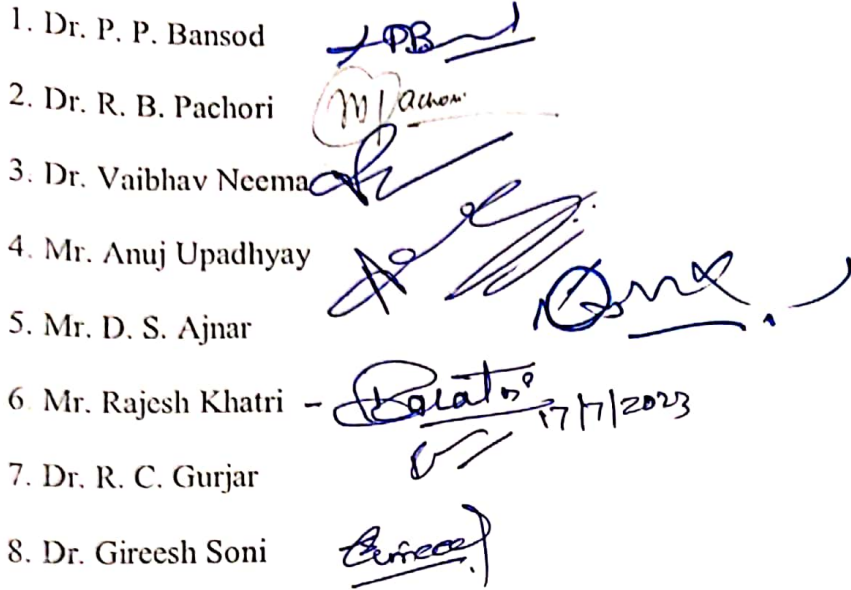 1. Dr. P. P. Bansod
2. Dr. R. B. Pachori
3. Dr. Vaibhav Neema
4. Mr. Anuj Upadhyay
5. Mr. D. S. Ajnar
6. Mr. Rajesh Khatri - 17/7/2023
7. Dr. R. C. Gurjar
8. Dr. Gireesh Soni